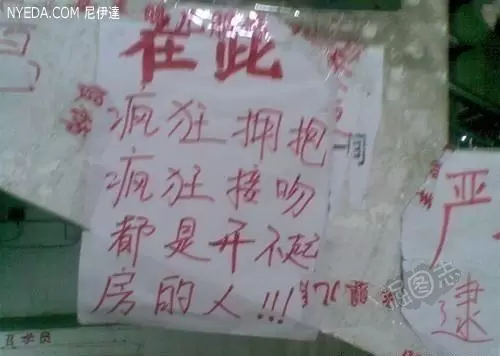 NYEDA.COM 尼伊達
在此
疯狂拥抱
疯狂接吻
都是开不起
房的人!!!
严
逮
学员